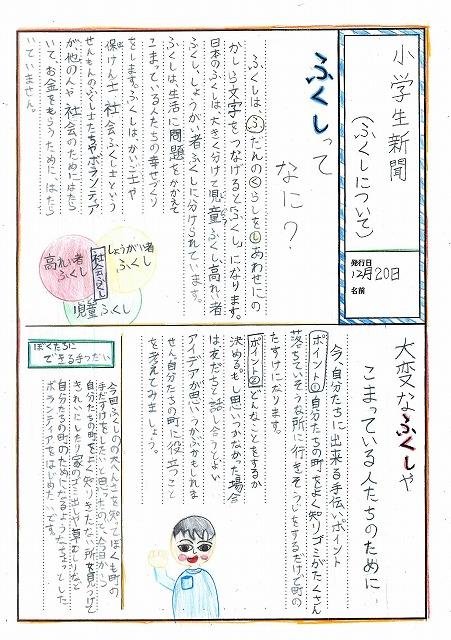 小学生新聞
(ふくしについて)
発行日
12月20日
名前
ふくしって
なに?
ふくしは、ふだんのくらしをしあわせにの
かしら文字をつなげると「ふくし」になります。
日本のふくしは大きく分けて児童ふくし、高れい者
ふくし、しょうがい者ふくしに分けられています。
ふくしは生活に問題をかかえて
こまっている人たちの幸せづくり
をします。ふくしは、かいご士や
保けん士、社会ふくし士という
せんもんのふくし士たちやボランティア
が、他の人や社会のためにはたら
いて、お金をもらうためにはたら
いていません。
しょうがい者
ふくし
高れい者
ふくし
社会ふくし
児童ふくし
大変なふくしや
こまっている人たちのために
今、自分たちに出来る手伝いポイント
ポイント①自分たちの町をよく知りゴミがたくさん
落ちていそうな所に行きそうじをするだけで町の
たすけになります。
ポイント②どんなことをするか
決める。もし思いつかなかった場合
は友だちと話し合うとよい
アイデアが思いつかぶかもしれま
せん。自分たちの町に役立つこと
を考えてみましょう。
ぼくたちに
できる手つだい
今回ふくしのの大へんさを知ってぼくも町の
手だすけをしたいと思ったので、今日から
自分たちの町をよく知りきたない所を見つけて
きれいにしたり家のゴミ出しや草むしりなど
自分たちの町のためになるようなちょっとした
ボランティアをはじめたいです。